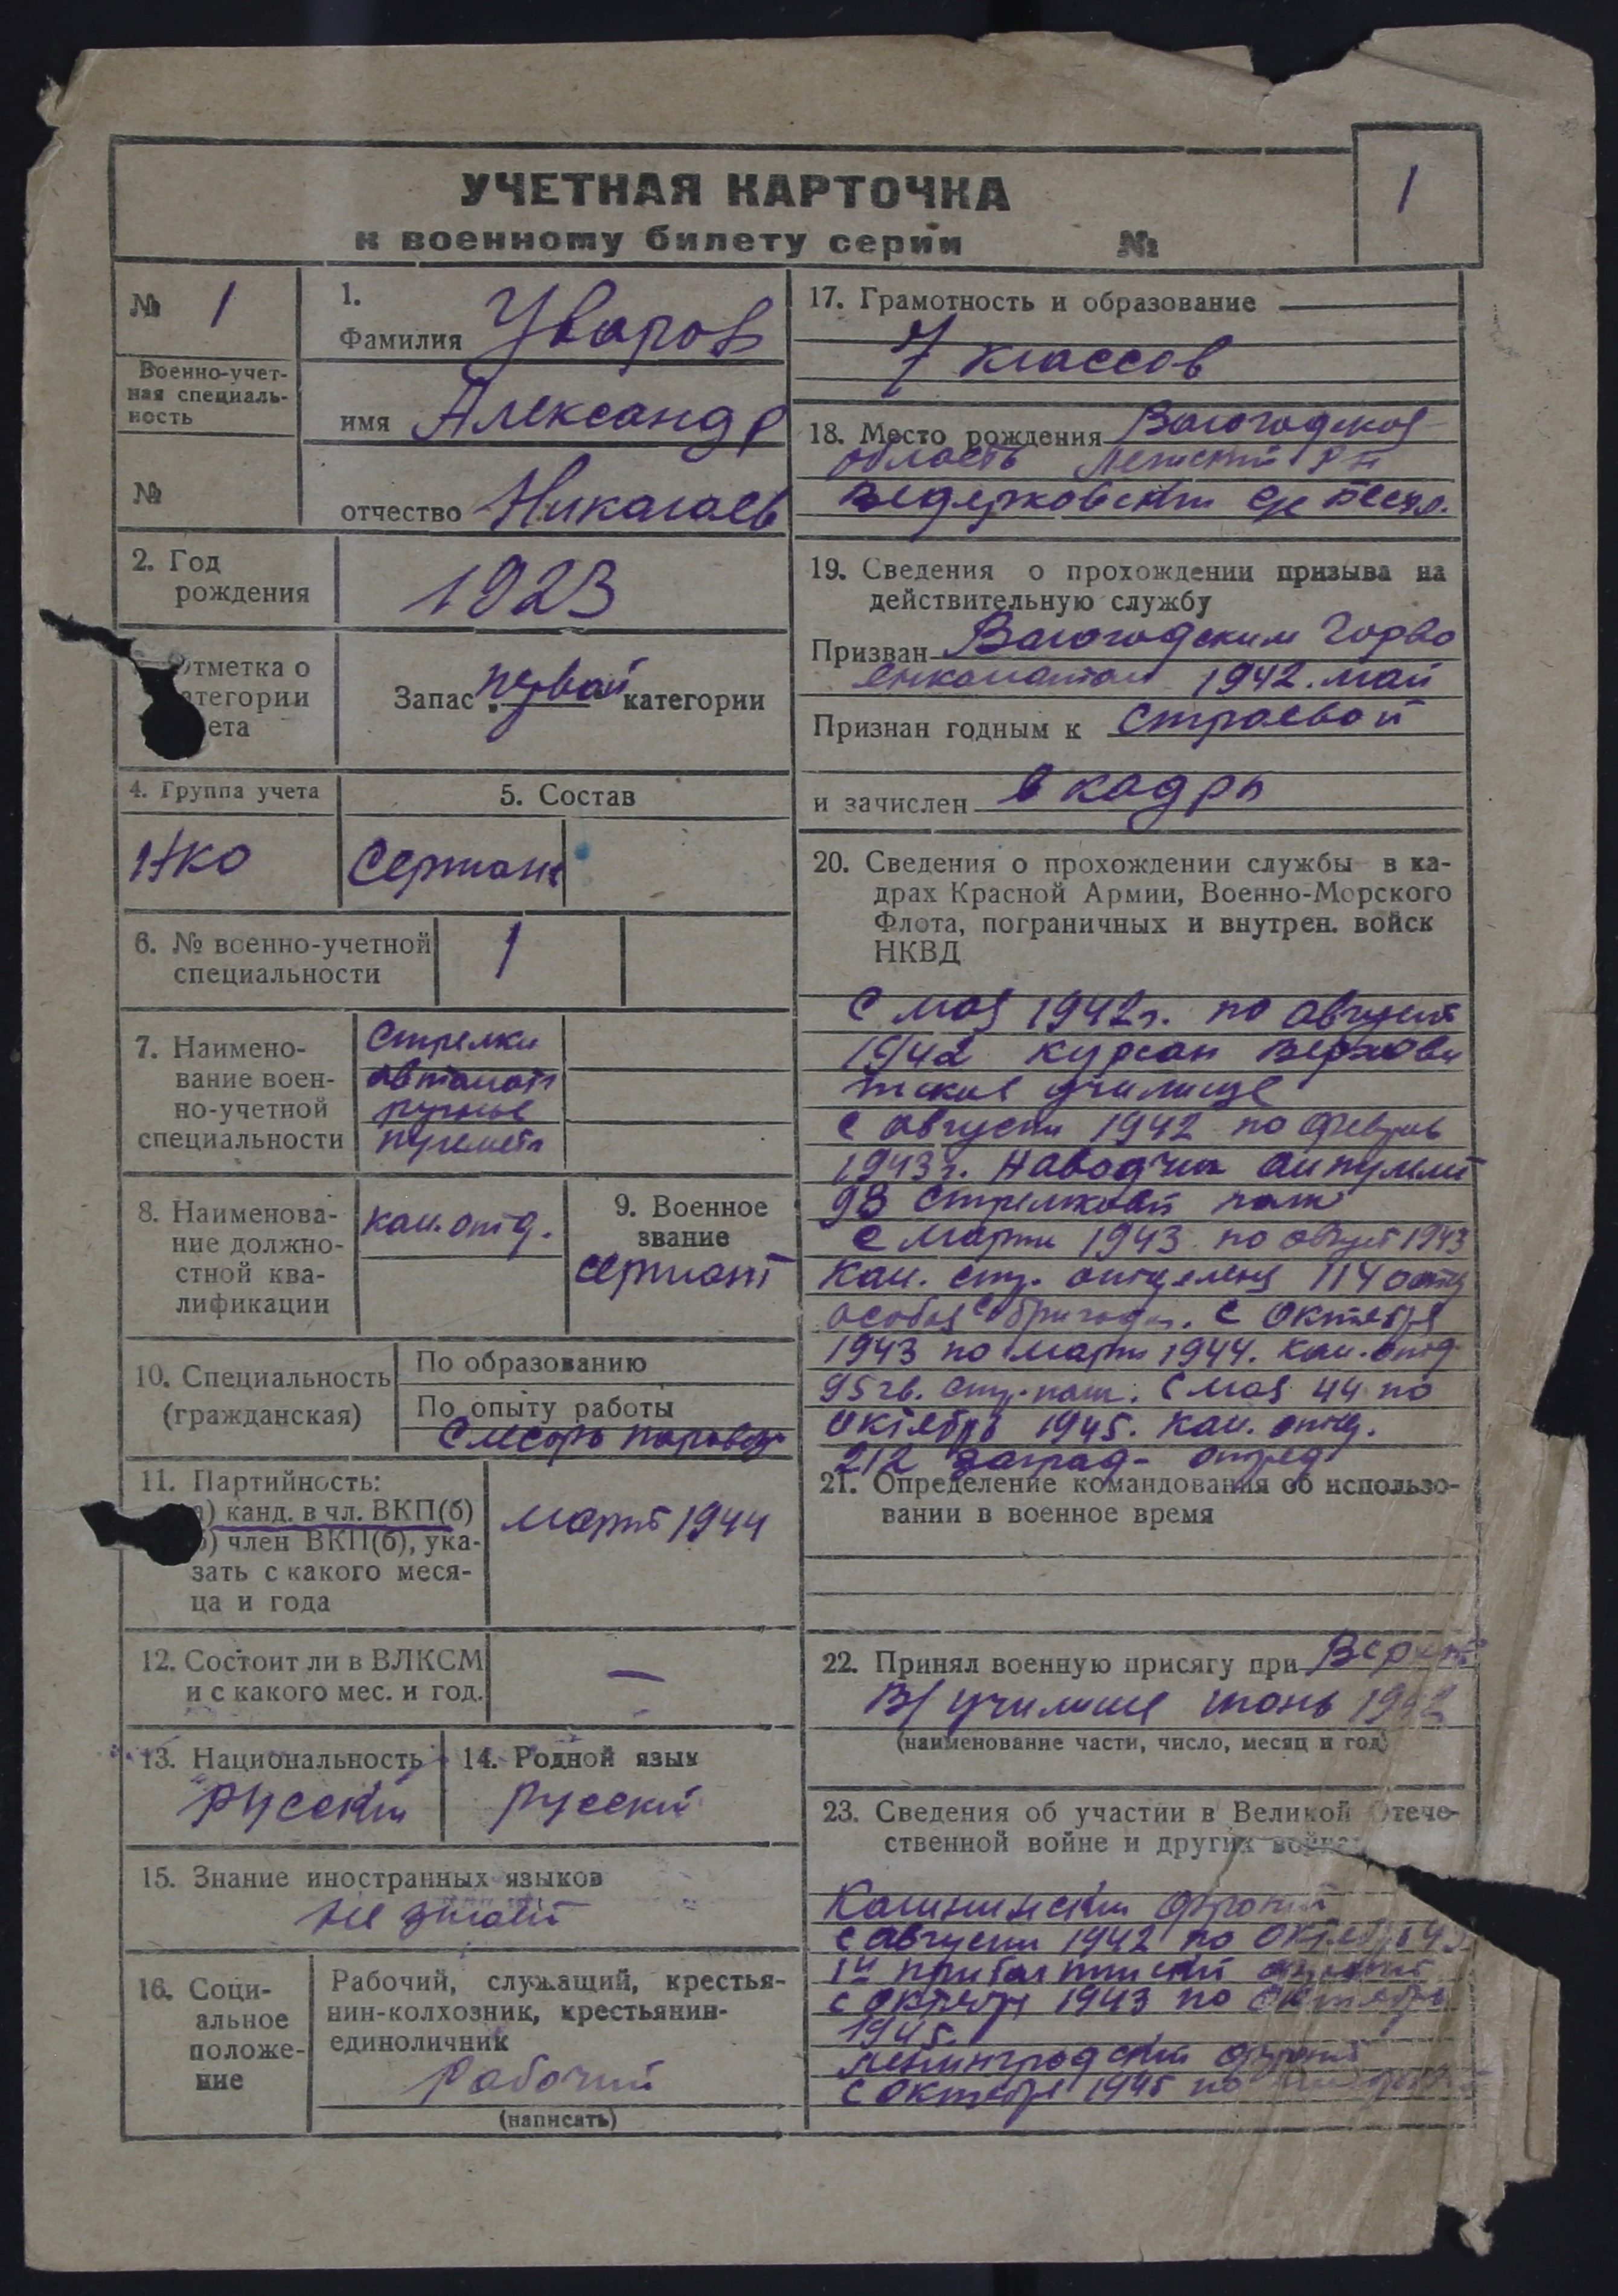 УЧЕТНАЯ КАРТОЧКА
к военному билету серии №
1
№ 1
Военно-учет-
ная специаль-
ность
№
1.
Фамилия Уваров
имя Александр
отчество Николаев
2. Год
рождения
1923
Отметка о
атегории
ета
Запас первой категории
4. Группа учета
НКО
5. Состав
Сержант
6. № военно-учетной
специальности
1
7. Наимено-
вание воен-
но-учетной
специальности
Стрелки
автомат
ручные
пулемет
8. Наименова-
ние должно-
стной ква-
лификации
Ком. отд.
9. Военное
звание
сержант
10. Специальность
(гражданская)
По образованию
По опыту работы
Слесарь паровоз
11. Партийность:
а) канд. в чл. ВКП(б)
б) член ВКП(б), ука-
зать с какого меся-
ца и года
март 1944
12. Состоит ли в ВЛКСМ
и с какого мес. и год.
—
13. Национальность
русский
14. Родной язык
русский
15. Знание иностранных языков
не знает
16. Соци-
альное
положе-
ние
Рабочий, служащий, крестья-
нин-колхозник, крестьянин-
единоличник
Рабочий
(написать)
17. Грамотность и образование
7 классов
18. Место рождения Вологодская
область рн
19. Сведения о прохождении призыва на
действительную службу
Призван Вологодским Горво
енкоматом 1942. май
Признан годным к строевой
и зачислен в кадры
20. Сведения о прохождении службы в ка-
драх Красной Армии, Военно-Морского
Флота, пограничных и внутрен. войск
НКВД
С мая 1942г. по август
1942 курсан
училище
с августа 1942 по февраль
1943г. Наводчик
93 стрелковый полк
с марта 1943 по август 1943
Ком. стр. отделения 114 отд
особая бригада. с октября
1943 по март 1944. ком. отд.
95 гв. стр. полк. С мая 44 по
октябрь 1945. ком. отд.
212 заград- отряд
21. Определение командования об использо-
вании в военное время
22. Принял военную присягу при
В/училище июнь 1942
(наименование части, число, месяц и год)
23. Сведения об участии в Великой Отече-
ственной войне и других войнах
Калининский фронт
с августа 1942 по октябрь 43
1й прибалтийский фронт
с октября 1943 по октябрь
1945.
Ленинградский фронт
с октября 1945 по